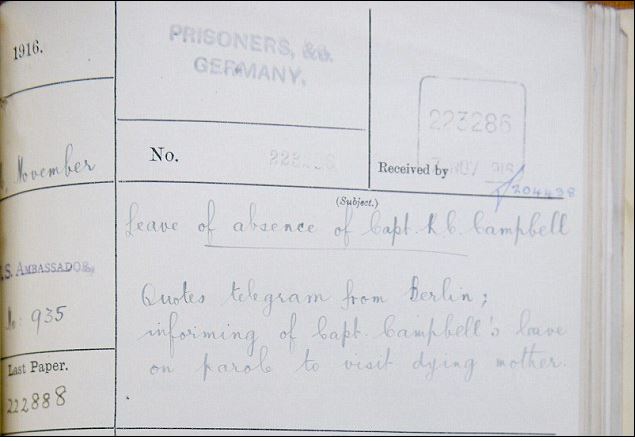 1916.
PRISONERS, &c.
GERMANY.
223286
November
No.
Received by
204438
(Subject.)
Leave of absence of Capt. R. C. Campbell
S. AMBASSADOR,
No: 935
Quotes telegram from Berlin;
informing of Capt. Campbell's leave
on parole to visit dying mother.
Last Paper.
222888